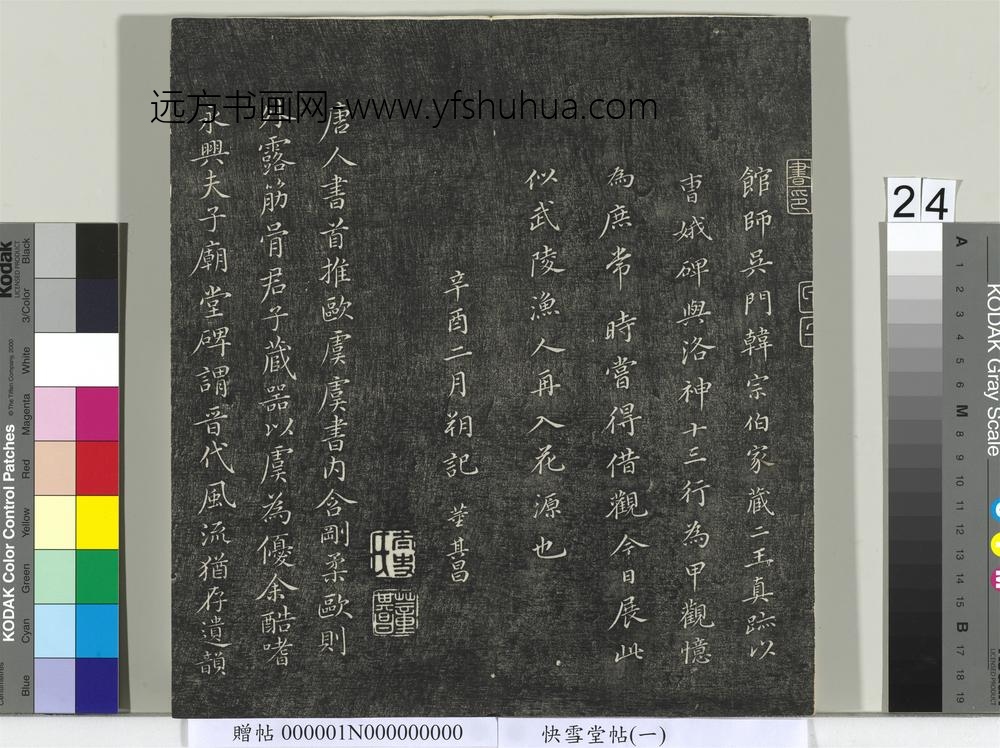 館師吳門韓宗伯家藏二王真跡以
曹娥碑與洛神十三行為甲觀憶
為庶常時嘗得借觀今日展此
似武陵漁人再入花源也
辛酉二月朔記 董其昌
唐人書首推歐虞虞書內含剛柔歐則
外露筋骨君子藏器以虞為優余酷嗜
永興夫子廟堂碑謂晉代風流猶存遺韻
書印
董其昌
远方书画网-www.yfshuhua.com
贈帖 000001N000000000
快雪堂帖(一)
24
Kodak
LICENSED PRODUCT
KODAK Color Control Patches
© The Tiffen Company, 2000
Black
3/Color
White
Magenta
Red
Yellow
Green
Cyan
Blue
Centimetres
KODAK Gray Scale
A 1 2 3 4 5 6 M 8 9 10 11 12 13 14 15 B 17 18 19